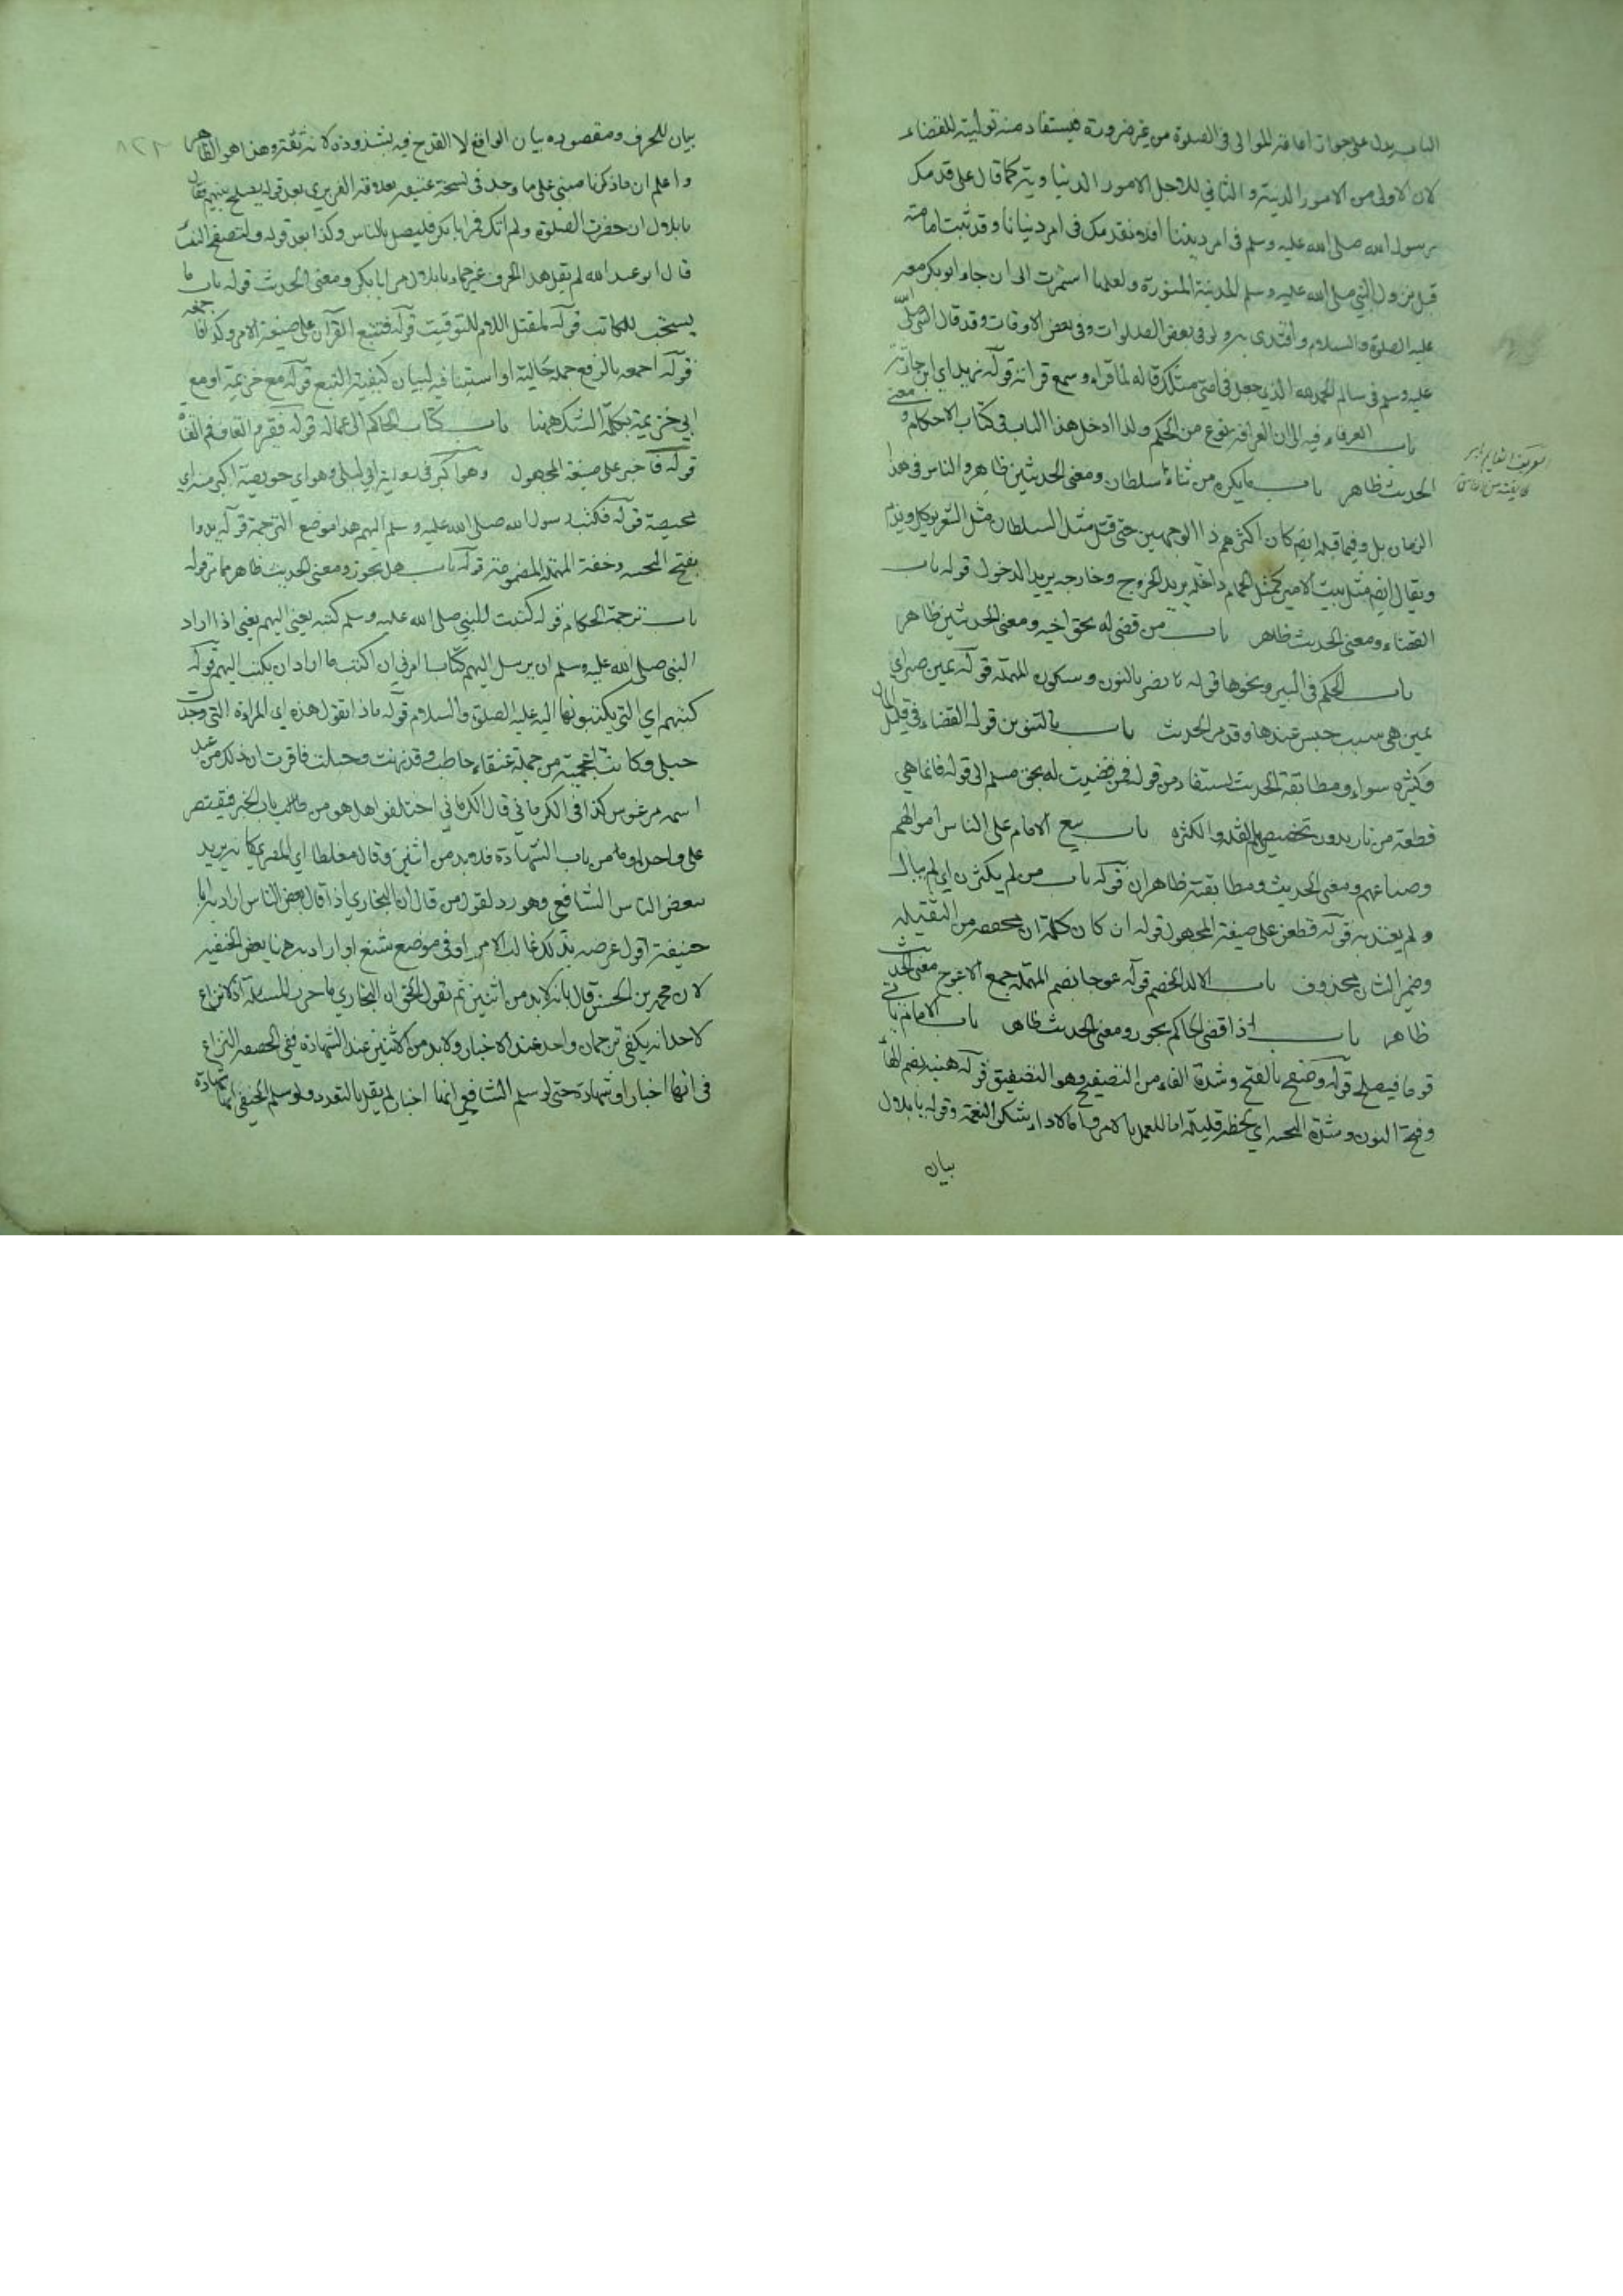 الباب يدل على جواز امامة الموالى فى الصلوة من غير ضرورة فيستفاد منه توليته للقضاء
لان الاولى من الامور الدينية والثانى للاجل الامور الدنياوية كما قال على قدمك
رسول الله صلى الله عليه وسلم فى امر ديننا افلا نقدمك فى امر دنيانا وقد ثبت امامته
قبل نزول النبي صلى الله عليه وسلم المدينة المنورة ولعلها استمرت الى ان جاء ابو بكر معه
عليه الصلوة والسلام واقتدى به ولو فى بعض الصلوات وفى بعض الاوقات وقد قال النبي صلى
عليه وسلم فى سالم الحمد لله الذي جعل فى امتى مثلك قاله لما قراه وسمع قرانه قوله زيد اي ابن حارثة
باب العرفاء فيه الى ان العرافة نوع من الحكم ولذا ادخل هذا الباب فى كتاب الاحكام ومعنى
الحديث ظاهر باب ما يكره من ثناء سلطان ومعنى الحديثين ظاهر والناس فى هذا
الزمان بل وفيما قبله ايضم كان اكثرهم ذا الوجهين حتى قيل مثل السلطان مثل التمر يوكل ويذم
ويقال ايضم مثل بيت الامير كمثل الحمام داخله يريد الخروج وخارجه يريد الدخول قوله باب
القضاء ومعنى الحديث ظاهر باب من قضى له بحق اخيه ومعنى الحديثين ظاهر
باب الحكم فى البير ونحوها قوله بالنون وسكون المهملة قوله يمين صبر اي
يمين هى سبب حبس عندها وقد مر الحديث باب بالتنوين قوله القضاء فى قليل المال
وكثيره سواء ومطابقة الحديث تستفاد من قوله فمن قضيت له بحق مسلم الى قوله فانما هي
قطعة من نار بدون تخصيص القلة والكثرة باب بيع الامام على الناس اموالهم
وضياعهم ومعنى الحديث ومطابقته ظاهران قوله باب من لم يكترث اي لم يبال
ولم يعتد به قوله قطعن على صيغة المجهول قوله ان كان كلمة ان مخففة من الثقيلة
وضمير الشان محذوف باب الالد الخصم قوله عوجا بضم المهملة جمع الاعوج معنى الحديث
ظاهر باب اذا قضى الحاكم بجور ومعنى الحديث ظاهر باب الامام ياتى
قوما فيصلح قوله وصفح بالفتح وشدة الفاء من التصفيح وهو التصفيق قوله هنية بضم الهاء
وفتح النون وشدة اي لحظة قليلة اما للعمل بالامر واما لاداء شكر النعمة وقوله يا بلال
بيان
بيان للحرف ومقصوده بيان الواقع لا القدح فيه بشذوذه لانه ثقة وهذا هو الظاهر
واعلم ان ما ذكرنا مبني على ما وجد فى نسخة عتيقة الفربري بعد قوله يصلح بينهم فقال
يا بلال ان حضرت الصلوة ولم اتك فمر ابا بكر فليصل بالناس وكذا بعد قوله ولتصفح النساء
قال ابو عبد الله لم يقل هذا الحرف غير حماد يا بلال مر ابا بكر ومعنى الحديث قوله باب ما
يستحب للكاتب قوله لمقتل اللام للتوقيت قوله فتتبع القرآن على صيغة الامر وكذا فاجمعه
قوله اجمعه بالرفع جملة حالية او استينافية لبيان كيفية التتبع قوله مع خزيمة او مع
ابي خزيمة بكلمة الشك ههنا باب كتاب الحاكم الى عماله قوله
قوله فاخبر على صيغة المجهول وهو اكبر فى رواية ابي ليلى وهو اي حويصة اكبر منه اي
محيصة قوله فكتب رسول الله صلى الله عليه وسلم اليهم هذا موضع الترجمة قوله
بفتح وخفة المهملة المضمومة قوله باب هل يجوز ومعنى الحديث ظاهر مما مر قوله
باب ترجمة الحكام قوله كتبت للنبي صلى الله عليه وسلم كتبه يعنى اليهم يعنى اذا اراد
النبي صلى الله عليه وسلم ان يرسل اليهم كتابا امرني ان اكتب ما اراد ان يكتب اليهم قوله
كتبهم اي التي يكتبونها اليه عليه الصلوة والسلام قوله ماذا تقول هذه اي المراة التي وجدت
حبلى وكانت اعجمية من جملة عتقاء حاطب وقد زنت وحبلت فاقرت ان ذلك من عبد
اسمه مرغوس كذا فى الكرماني قال الكرماني اختلفوا هل هو من باب الخبر فيقتصر
على واحد او من باب الشهادة فلا بد من اثنين وقال مغلطاي المصري كانه يريد
ببعض الناس الشافعي وهو رد لقول من قال ان البخاري اذا قال بعض الناس اراد به ابا
حنيفة اقول غرضه بذلك غالب الامر او فى موضع تشنع او اراد به ههنا بعض الحنفية
لان محمد بن الحسن قال بانه لا بد من اثنين ثم نقول الحق ان البخاري ما حرر المسئلة اذ لا نزاع
لاحد انه يكفى ترجمان واحد عند الاخبار ولا بد من الاثنين عند الشهادة ففى الحقيقة النزاع
فى انها اخبار او شهادة حتى لو سلم الشافعي انها اخبار لم يقل بالتعدد ولو سلم الحنفى انها شهادة